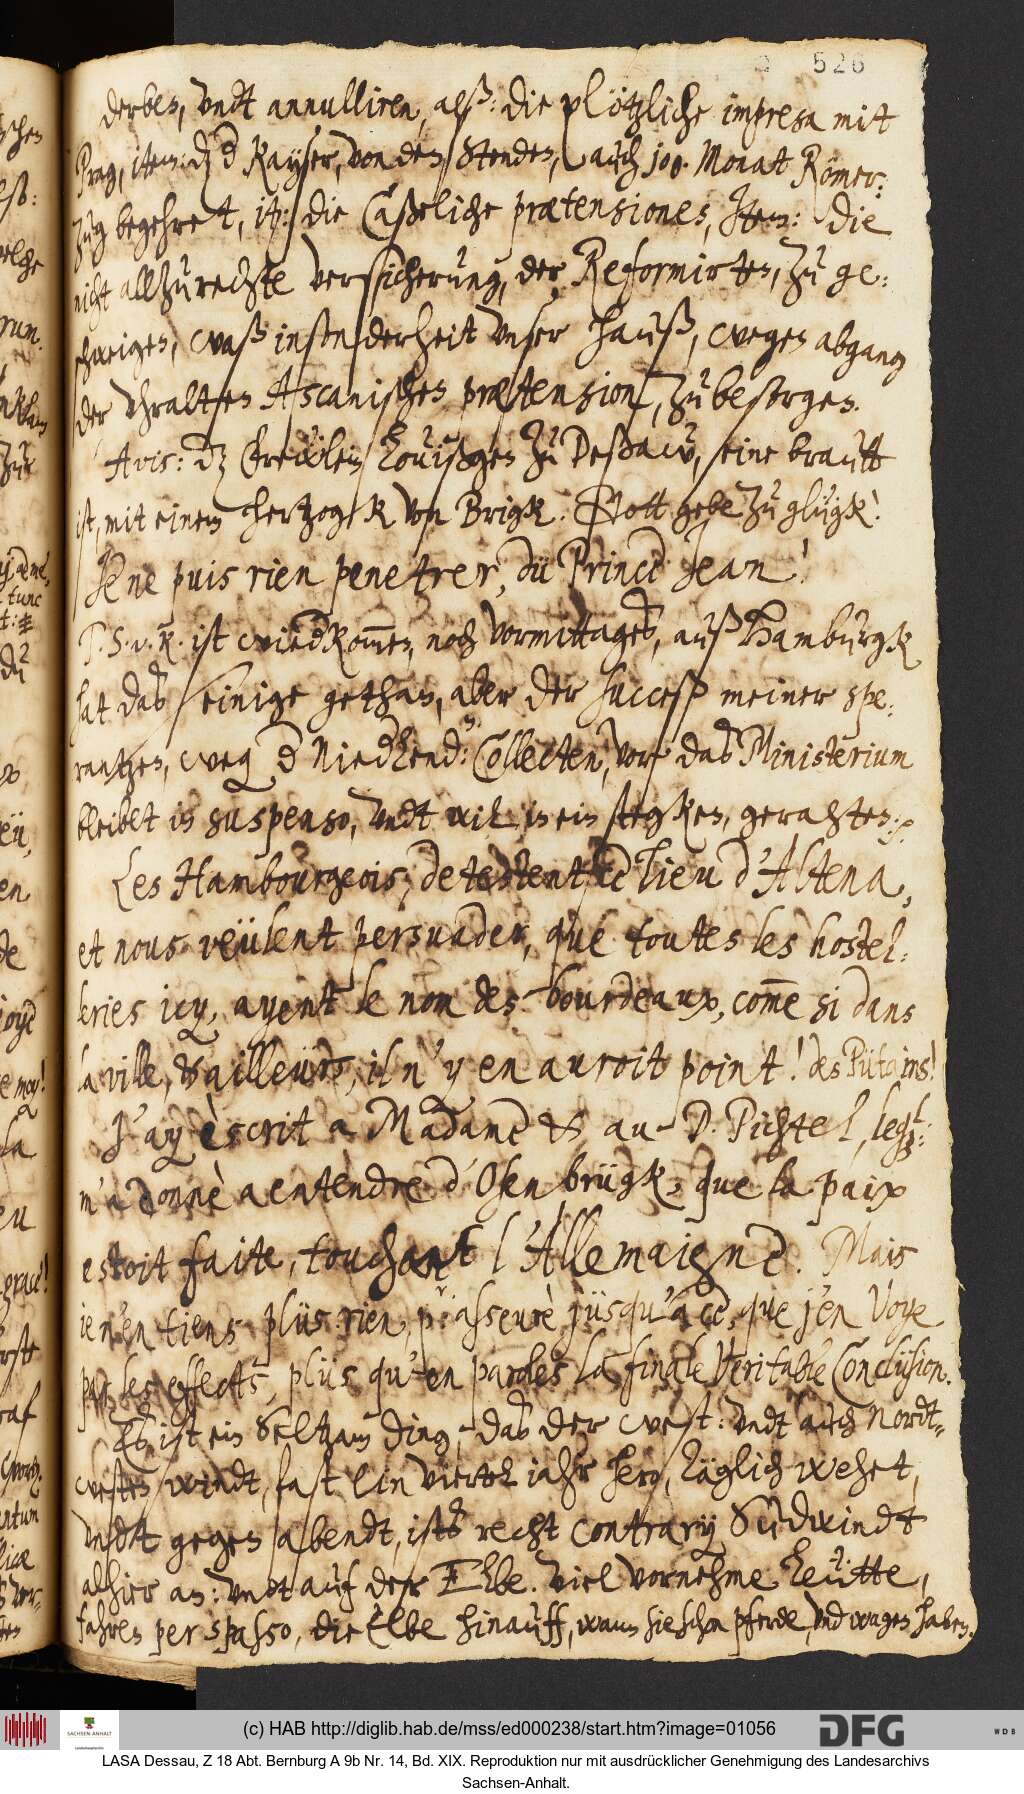 526
derben, vndt annulliren, alß: die plötzliche impresa mit
Prag, item: dz d Kayser, von den Stenden, auch 100. Monat Römer:
zug begehret, it: die Caßeliche prætensiones, Item: die
nicht allzurechte versicherung, der Reformirten, zu ge:
schweigen, waß insonderheit vnser hauß, wegen abgang
der vhralten Ascanischen prætension, zu besorgen.
Avis: dz Frewlein Louißgen zu Deßaw, eine brautt
ist, mit einem hertzogk von Brigk. Gott gebe zu glügk!
Je ne puis rien penetrer, dü Prince Jean!
P. S. v. K. ist wiedkom̅en, noch vormittages, auß Hamburgk
hat das seinige gethan, aber der succeß meiner spe:
rantzen, weg d Niedlend: Collecten, vor das Ministerium
bleibet in suspenso, vndt wil in ein stegken, gerahten.
Les Hambourgeois, detestent ce lieu d'Altena,
et nous veülent persuader, que toutes les hostel:
leries icy, ayent le nom des bourdeaux, com̅e si dans
la ville, & ailleurs, il n'y en auroit point! des Pütains!
J'ay èscrit a Madame & au D. Pichtel, leql:
m'a donnè a entendre d'Osenbrügk, que la paix
estoit faite, touchant l'Allemaigne. Mais
je n'en tiens plüs rien, pr: asseurè jüsqu'a ce, que j'en voye
par les effects, plüs qu'en paroles la finale veritable Conclüsion.
Es ist ein seltzam ding, das der west: vndt auch Nordt-
westen windt, fast ein viertel jahr hero, täglich wehet,
vndt gegen abendt, ists recht contrary Sudwindt
alhier an: vndt auf der Elbe. Viel vornehme leütte,
fahren per spasso, die Elbe hinauff, wann sie schon pferde, vnd wagen haben.
(c) HAB http://diglib.hab.de/mss/ed000238/start.htm?image=01056
SACHSEN-ANHALT
DFG
WDB
LASA Dessau, Z 18 Abt. Bernburg A 9b Nr. 14, Bd. XIX. Reproduktion nur mit ausdrücklicher Genehmigung des Landesarchivs
Sachsen-Anhalt.